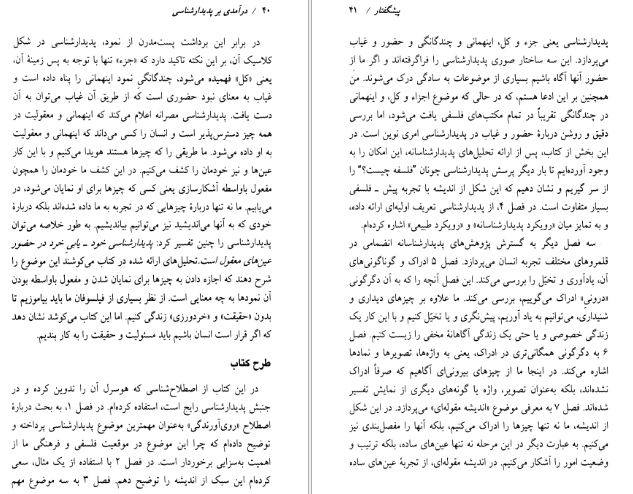 ۴۰ / درآمدی بر پدیدارشناسی
در برابر این برداشت پست‌مدرن از نمود، پدیدارشناسی در شکل
کلاسیک آن، بر این نکته تاکید دارد که «جزء» تنها با توجه به پس زمینهٔ آن،
یعنی «کل» فهمیده می‌شود، چندگانگیِ نمودِ اینهمانی را پناه داده است و
غیاب به معنای نبود حضوری است که از طریق آن غیاب می‌توان به آن
دست یافت. پدیدارشناسی مصرانه اعلام می‌کند که اینهمانی و معقولیت در
همه چیز دسترس‌پذیر است و انسان را کسی می‌داند که اینهمانی و معقولیت
به او داده می‌شود. ما طریقی را که چیزها هستند هویدا می‌کنیم و با این کار
عین‌ها و نیز خودمان را کشف می‌کنیم. در این کشف ما خودمان را همچون
مفعول باواسطه آشکارسازی یعنی کسی که چیزها برای او نمایان می‌شود، در
می‌یابیم. ما نه تنها دربارهٔ چیزهایی که در تجربه به ما داده شده‌اند بلکه دربارهٔ
خودی که به آنها می‌اندیشید نیز می‌توانیم بیاندیشیم. به طور خلاصه می‌توان
پدیدارشناسی را چنین تفسیر کرد: پدیدارشناسی خود ـ یابی خرد در حضور
عین‌های معقول است. تحلیل‌های ارائه شده در کتاب می‌کوشند این موضوع را
شرح دهند که اجازه دادن به چیزها برای نمایان شدن و مفعول باواسطه بودن
آن نمودها به چه معنایی است. از نظر بسیاری از فیلسوفان ما باید بیاموزیم تا
بدون «حقیقت» و «خردورزی» زندگی کنیم. اما این کتاب می‌کوشد نشان دهد
که اگر قرار است انسان باشیم باید مسئولیت و حقیقت را به کار بندیم.
طرح کتاب
در این کتاب از اصطلاح‌شناسی که هوسرل آن را تدوین کرده و در
جنبش پدیدارشناسی رایج است، استفاده کرده‌ام. در فصل ۱، به بحث دربارهٔ
اصطلاح «روی‌آورندگی» به‌عنوان مهمترین موضوع پدیدارشناسی پرداخته و
توضیح داده‌ام که چرا این موضوع در موقعیت فلسفی و فرهنگی ما از
اهمیت به‌سزایی برخوردار است. در فصل ۲ با استفاده از یک مثال، سعی
کرده‌ام این سبک از اندیشه را توضیح دهم. فصل ۳ به سه موضوع مهم
پیشگفتار / ۴۱
پدیدارشناسی یعنی جزء و کل، اینهمانی و چندگانگی و حضور و غیاب
می‌پردازد. این سه ساختار صوری پدیدارشناسی را فراگرفته‌اند و اگر ما از
حضور آنها آگاه باشیم بسیاری از موضوعات به سادگی درک می‌شوند. من
همچنین بر این ادعا هستم، که در حالی که موضوع اجزاء و کل، و اینهمانی
در چندگانگی تقریباً در تمام مکتب‌های فلسفی یافت می‌شود، اما بررسی
دقیق و روشن دربارهٔ حضور و غیاب در پدیدارشناسی امری نوین است. در
این بخش از کتاب، پس از ارائه تحلیل‌های پدیدارشناسانه، این امکان را به
وجود آورده‌ایم تا بار دیگر پرسش پدیدارشناسی چونان "فلسفه چیست؟" را
از سر گیریم و نشان دهیم که این شکل از اندیشه با تجربه پیش ـ فلسفی
بسیار متفاوت است. در فصل ۴، از پدیدارشناسی تعریف اولیه‌ای ارائه داده،
و به تمایز میان «رویکرد پدیدارشناسانه» و «رویکرد طبیعی» اشاره کرده‌ام.
سه فصل دیگر به گسترش پژوهش‌های پدیدارشناسانه انضمامی در
قلمروهای مختلف تجربه انسان می‌پردازد. فصل ۵ ادراک و گوناگونی‌های
آن، یادآوری و تخیّل را بررسی می‌کند. این فصل آنچه را که به آن دگرگونی
«درونی» ادراک می‌گوییم، بررسی می‌کند. ما علاوه بر چیزهای دیداری و
شنیداری، می‌توانیم به یاد آوریم، پیش‌نگری و یا تخیّل کنیم و با این کار یک
زندگی خصوصی و یا حتی یک زندگی آگاهانهٔ مخفی را زیست کنیم. فصل
۶ به دگرگونی همگانی‌تری در ادراک، یعنی به واژه‌ها، تصویرها و نمادها
اشاره می‌کند. در اینجا ما از چیزهای بیرونی‌ای آگاهیم که صرفاً ادراک
نشده‌اند، بلکه به‌عنوان تصویر، واژه یا گونه‌های دیگری از نمایش تفسیر
شده‌اند. فصل ۷ به معرفی موضوع «اندیشه مقوله‌ای» می‌پردازد. در این شکل
از اندیشه، ما نه تنها چیزها را ادراک می‌کنیم، بلکه آنها را مفصل‌بندی نیز
می‌کنیم. به عبارت دیگر در این مرحله نه تنها عین‌های ساده، بلکه ترتیب و
وضعیت امور را آشکار می‌کنیم. در اندیشه مقوله‌ای، از تجربهٔ عین‌های ساده